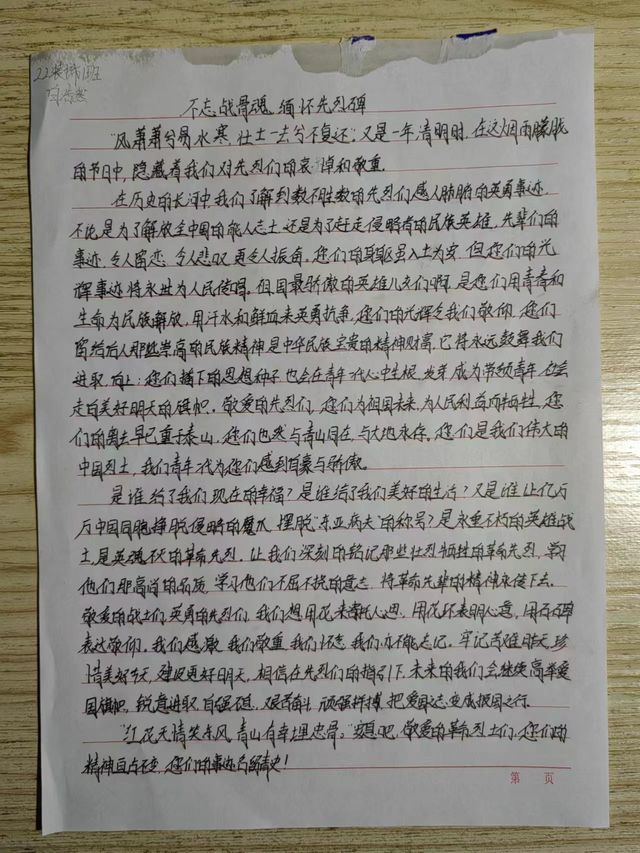 22装饰1班
不忘战骨魂,缅怀先烈碑
“风萧萧兮易水寒,壮士一去兮不复还”又是一年清明时,在这烟雨朦胧
的节日中,隐藏着我们对先烈们的哀悼和敬重.
在历史的长河中我们了解到数不胜数的先烈们感人肺腑的英勇事迹,
不论是为了解放全中国的能人志士,还是为了赶走侵略者的民族英雄,先辈们的
事迹,令人留恋,令人悲叹,更令人振奋。您们的身躯虽入土为安,但您们的光
辉事迹将永世为人民传唱,祖国最骄傲的英雄儿女们啊,是您们用青春和
生命为民族解放,用汗水和鲜血来英勇抗争,您们的光辉令我们敬仰,您们
留给后人那些崇高的民族精神是中华民族宝贵的精神财富,它将永远鼓舞我们
进取向上;您们播下的思想种子也会在青年一代心中生根,发芽,成为带领青年
走向美好明天的旗帜。敬爱的先烈们,您们为祖国未来,为人民利益而牺牲,您
们的离去早已重于泰山,您们也必然与青山同在,与大地永存。您们是我们伟大的
中国烈士,我们青年一代为您们感到自豪与骄傲。
是谁给了我们现在的幸福?是谁给了我们美好的生活?又是谁让亿万
万中国同胞挣脱侵略的魔爪,摆脱“东亚病夫”的称号?是永垂不朽的英雄战
士,是英魂不灭的革命先烈。让我们深刻的铭记那些壮烈牺牲的革命先烈,学习
他们那高尚的品质,学习他们不屈不挠的意志,将革命先辈的精神永传下去。
敬爱的战士们,英勇的先烈们,我们想用花来寄托心思,用花环表明心意,用石碑
表达敬仰。我们感激,我们敬重,我们怀念,我们亦不能忘记。牢记苦难昨天,珍
惜美好今天,建设更好明天,相信在先烈们的指引下,未来的我们会继续高举爱
国旗帜,锐意进取,自强不息,艰苦奋斗,顽强拼搏,把爱国之志变成报国之行。
“红花无情笑东风,青山有幸埋忠骨。”安息吧,敬爱的革命烈士们,您们的
精神亘古不变,您们的事迹名留青史!
第 页